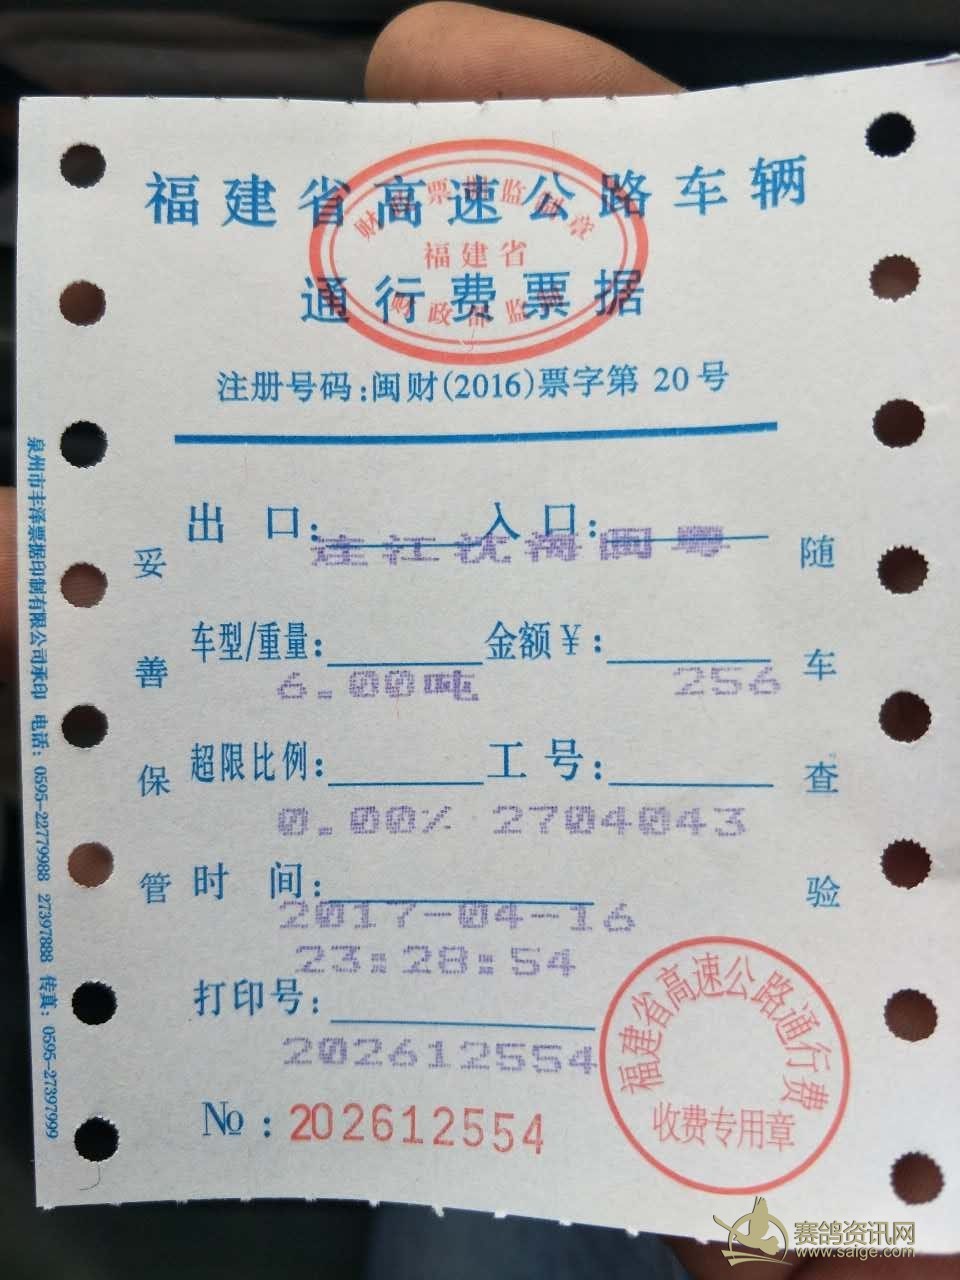 福建省高速公路车辆
通行费票据
福建省
注册号码:闽财(2016)票字第 20号
出 口: 入 口:
连江沈海闽粤
车型/重量: 金额¥:
6.00吨 256
超限比例: 工 号:
0.00% 2704043
时 间:
2017-04-16
23:28:54
打印号:
202612554
№:202612554
妥善保管
随车查验
泉州市丰泽票据印制有限公司承印 电话: 0595-22779988 27397888 传真: 0595-27397999
福建省高速公路通行费
收费专用章
赛鸽资讯网
www.saige.com